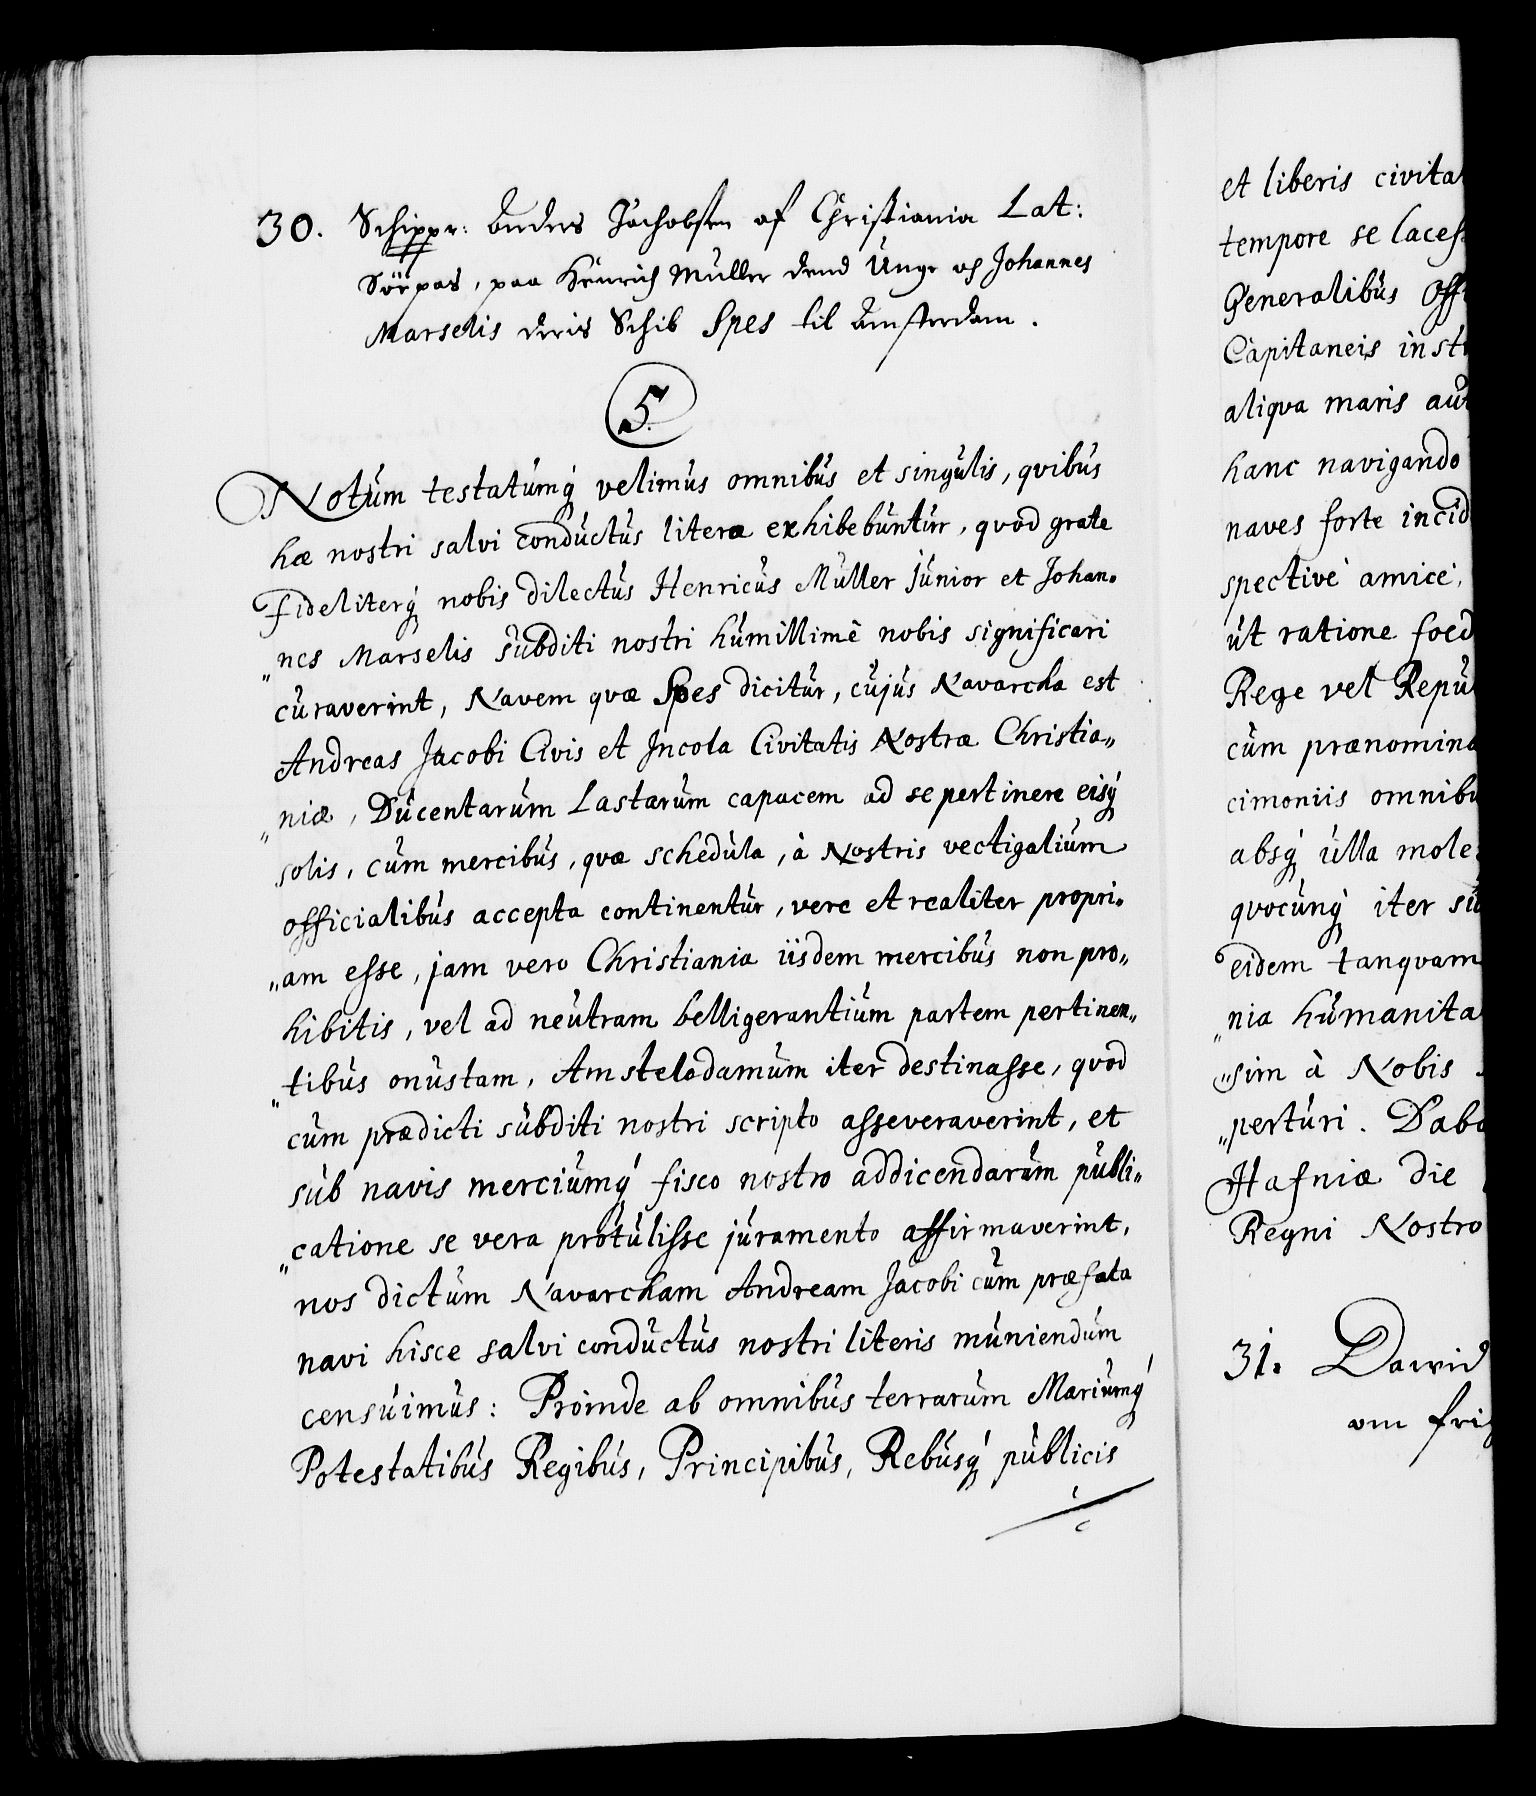 30. Schippr: Anders Jachobsen af Christiania Lat:
Söepas, paa Henrich Müller dend Unge oc Johannes
Marselis deris Schib Spes til Amsterdam.
5.
Notum testatumq́ velimus omnibus et singulis, qvibus
hæ nostri salvi conductus literæ exhibebuntur, qvod grate
Fideliterq́ nobis dilectus Henricus Muller junior et Johan„
„nes Marselis subditi nostri humillimè nobis significari
curaverint, Navem qvæ Spes dicitur, cujus Navarcha est
Andreas Jacobi Civis et Incola Civitatis Nostræ Christia„
„niæ, Ducentarum Lastarum capacem ad se pertinere eisq́
solis, cum mercibus, qvæ schedula, à Nostris vectigalium
officialibus accepta continentur, vere et realiter propri„
„am esse, jam vero Christiania iisdem mercibus non pro„
hibitis, vel ad neutram belligerantium partem pertinen„
„tibus onustam, Amstelodamum iter destinasse, qvod
cum prædicti subditi nostri scripto asseveraverint, et
sub navis merciumq́ fisco nostro addicendarum publi„
„catione se vera protulisse juramento affirmaverint,
nos dictum Navarcham Andream Jacobi cum præfata
navi hisce salvi conductus nostri literis muniendum
censuimus: Proinde ab omnibus terrarum Mariumq́
Potestatibus Regibus, Principibus, Rebusq́ publicis
et liberis civita
tempore se laces
Generalibus Off
Capitaneis inst
aliqva maris au
hanc navigando
naves forte incid
spectivè amicè,
ut ratione foed
Rege vel Repu
cum prænomina
cimoniis omnibu
absq́ ulla mole
qvocunq́ iter su
eidem tanqvam
„nia humanita
„sim à Nobis
„perturi. Daba
Hafniæ die
Regni Nostro
31. Dawid
om frij